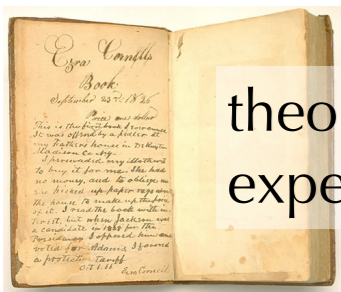 Ezra Cornell's
Book
September 23rd 1826
Price one dollar
This is the first book I ever owned
it was offered by a pedler at
my Fathers house in DeRuyter
Madison Co. N.Y.
I persuaded my Mother
to buy it for me. She had
no money, and to oblige me
she picked up paper rags
the house to make up the
of it. I read the book with in
terest, but when Jackson was
a candidate in 1828 for the
I opposed him and
voted for Adams. I favored
a protective Tariff
Ezra Cornell
theo
expe